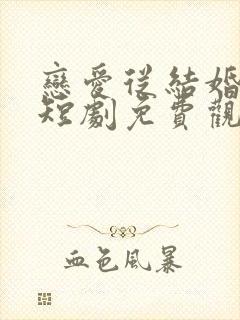 戀愛從結婚
短劇免費觀
血色風暴